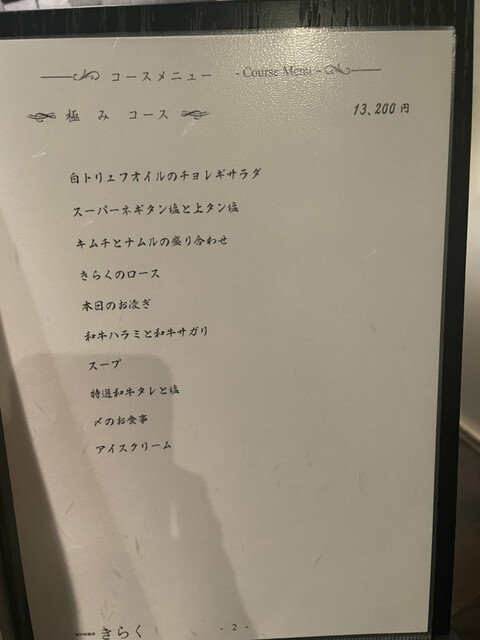 コースメニュー - Course Menu -
極み コース 13,200円
白トリュフオイルのチョレギサラダ
スーパーネギタン塩と上タン塩
キムチとナムルの盛り合わせ
きらくのロース
本日のお凌ぎ
和牛ハラミと和牛サガリ
スープ
特選和牛タレと塩
〆のお食事
アイスクリーム
きらく - 2 -